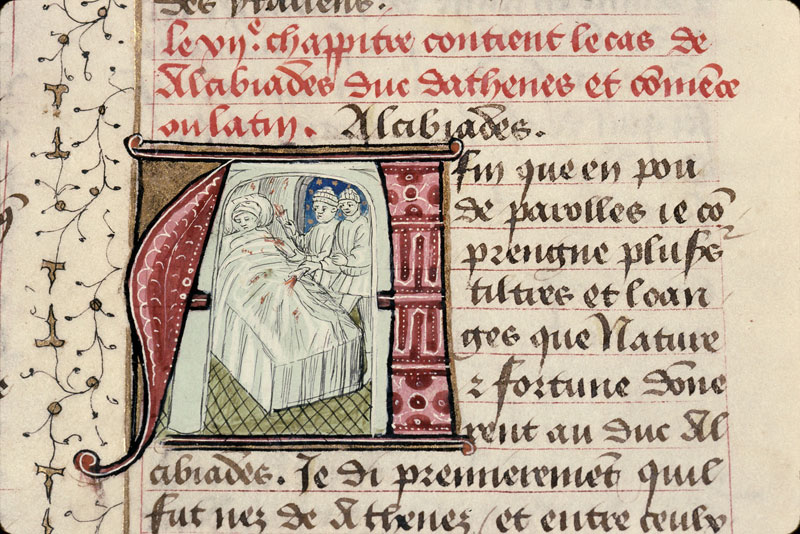 des ytaliens.
Le vijᵉ. chappitre contient le cas de
Alcibiadēs duc dathenes et cōmēce
ou latin. Alcibiadēs.
Afin que en pou
de parolles ie cō
prengne plusᵉs
tiltres et loan
ges que Nature
⁊ fortune dōne
rent au duc Al
cibiadēs. Je di premieremēt quil
fut nez de Athenez / et entre ceulx